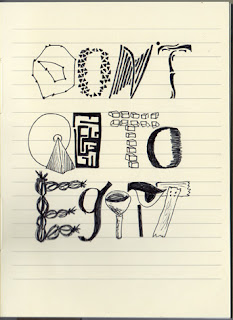 DON'T
GO TO
EgipT